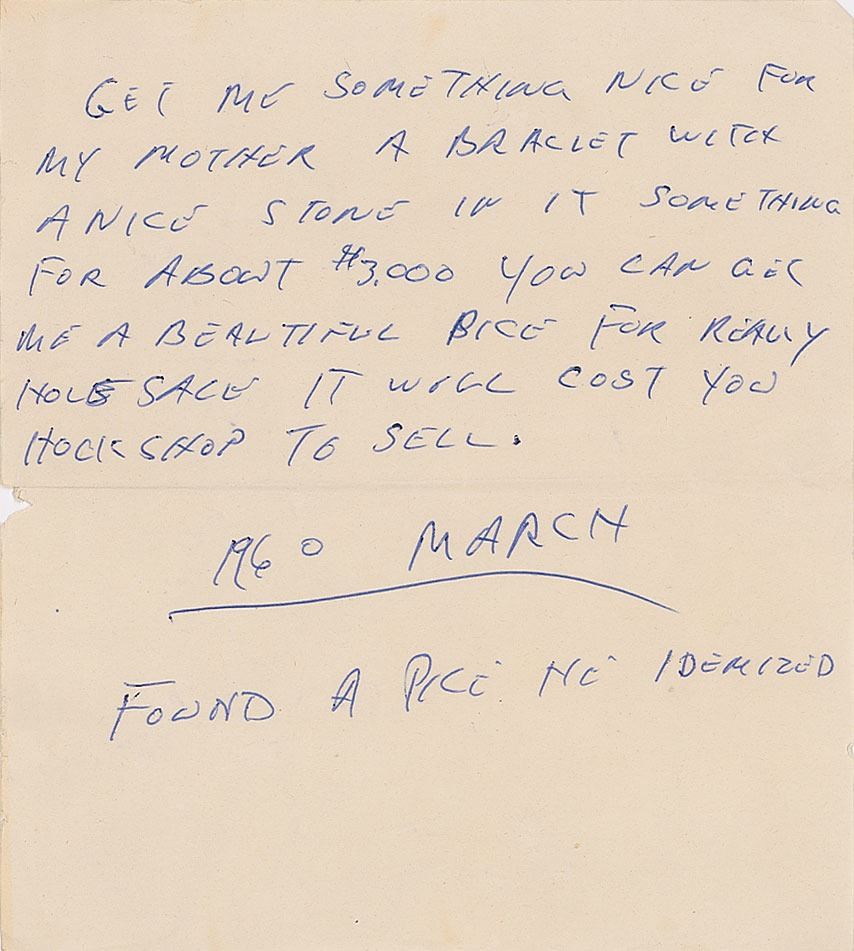 GET ME SOMETHING NICE FOR
MY MOTHER A BRACLET WITH
A NICE STONE IN IT SOMETHING
FOR ABOWT $3,000 YOU CAN GET
ME A BEAUTIFUL PICE FOR REALLY
HOLESALE IT WILL COST YOU
HOCKSHOP TO SELL.
1960 MARCH
FOUND A PICE HE IDEMIZED